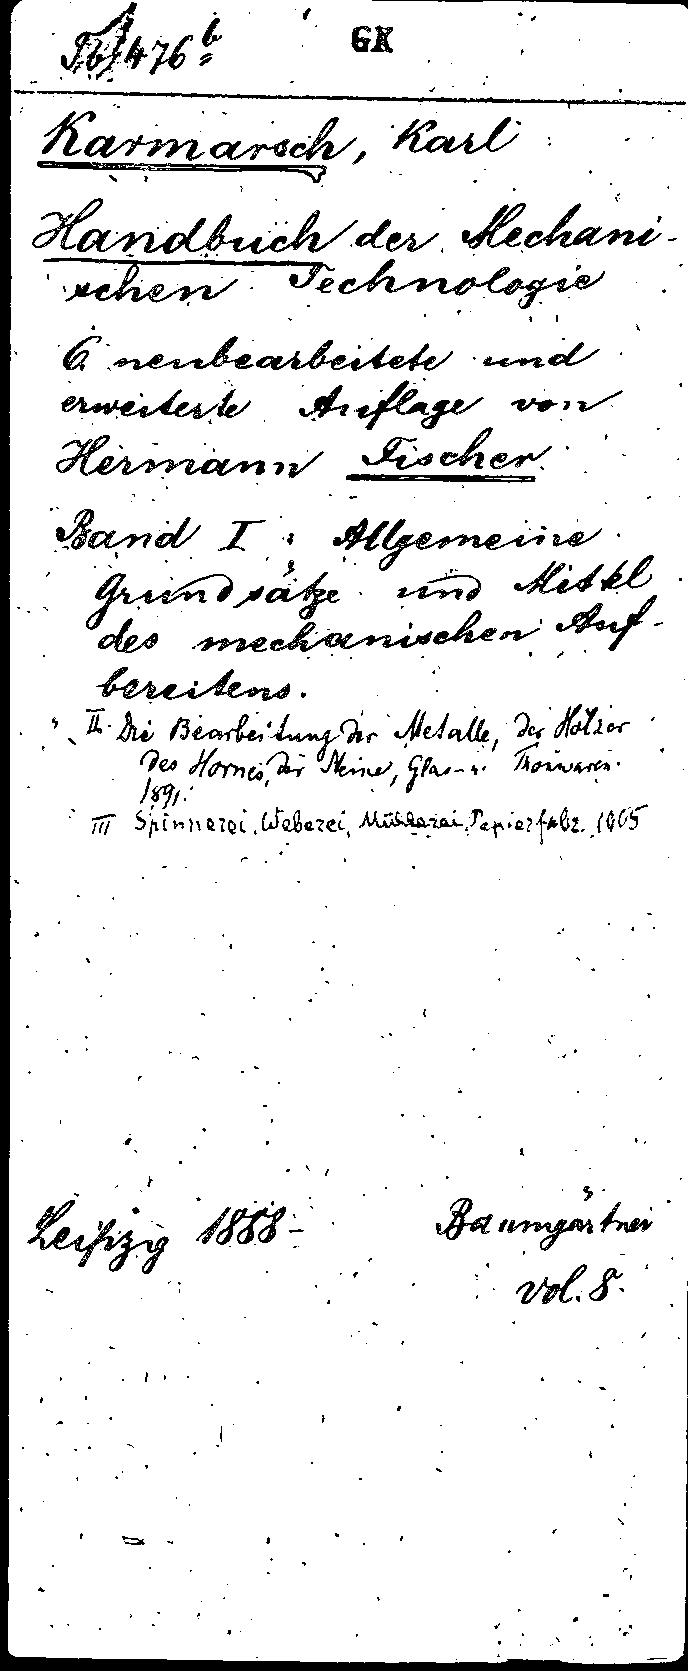 Tb 476 b
GK
Karmarsch, Karl
Handbuch der Mechani-
schen Technologie
6. neubearbeitete und
erweiterte Auflage von
Hermann Fischer.
Band I : Allgemeine
Grundsätze und Mittel
des mechanischen Auf-
bereitens.
" II. Die Bearbeitung der Metalle, der Hölzer
des Hornes, der Steine, Glas- u. Thonwaren.
1891.
III Spinnerei, Weberei, Müllerei, Papierfabr. 1905
Leipzig 1888- Baumgärtner
vol. 8.